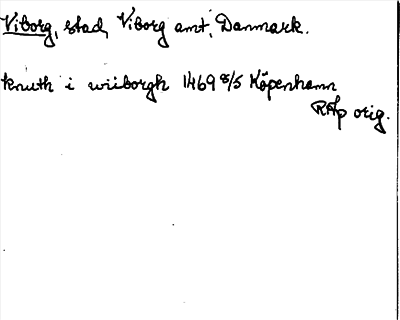 Viborg, stad, Viborg amt, Danmark.
knuth i wiiborgh 1469 8/5 Köpenhamn
RAp orig.